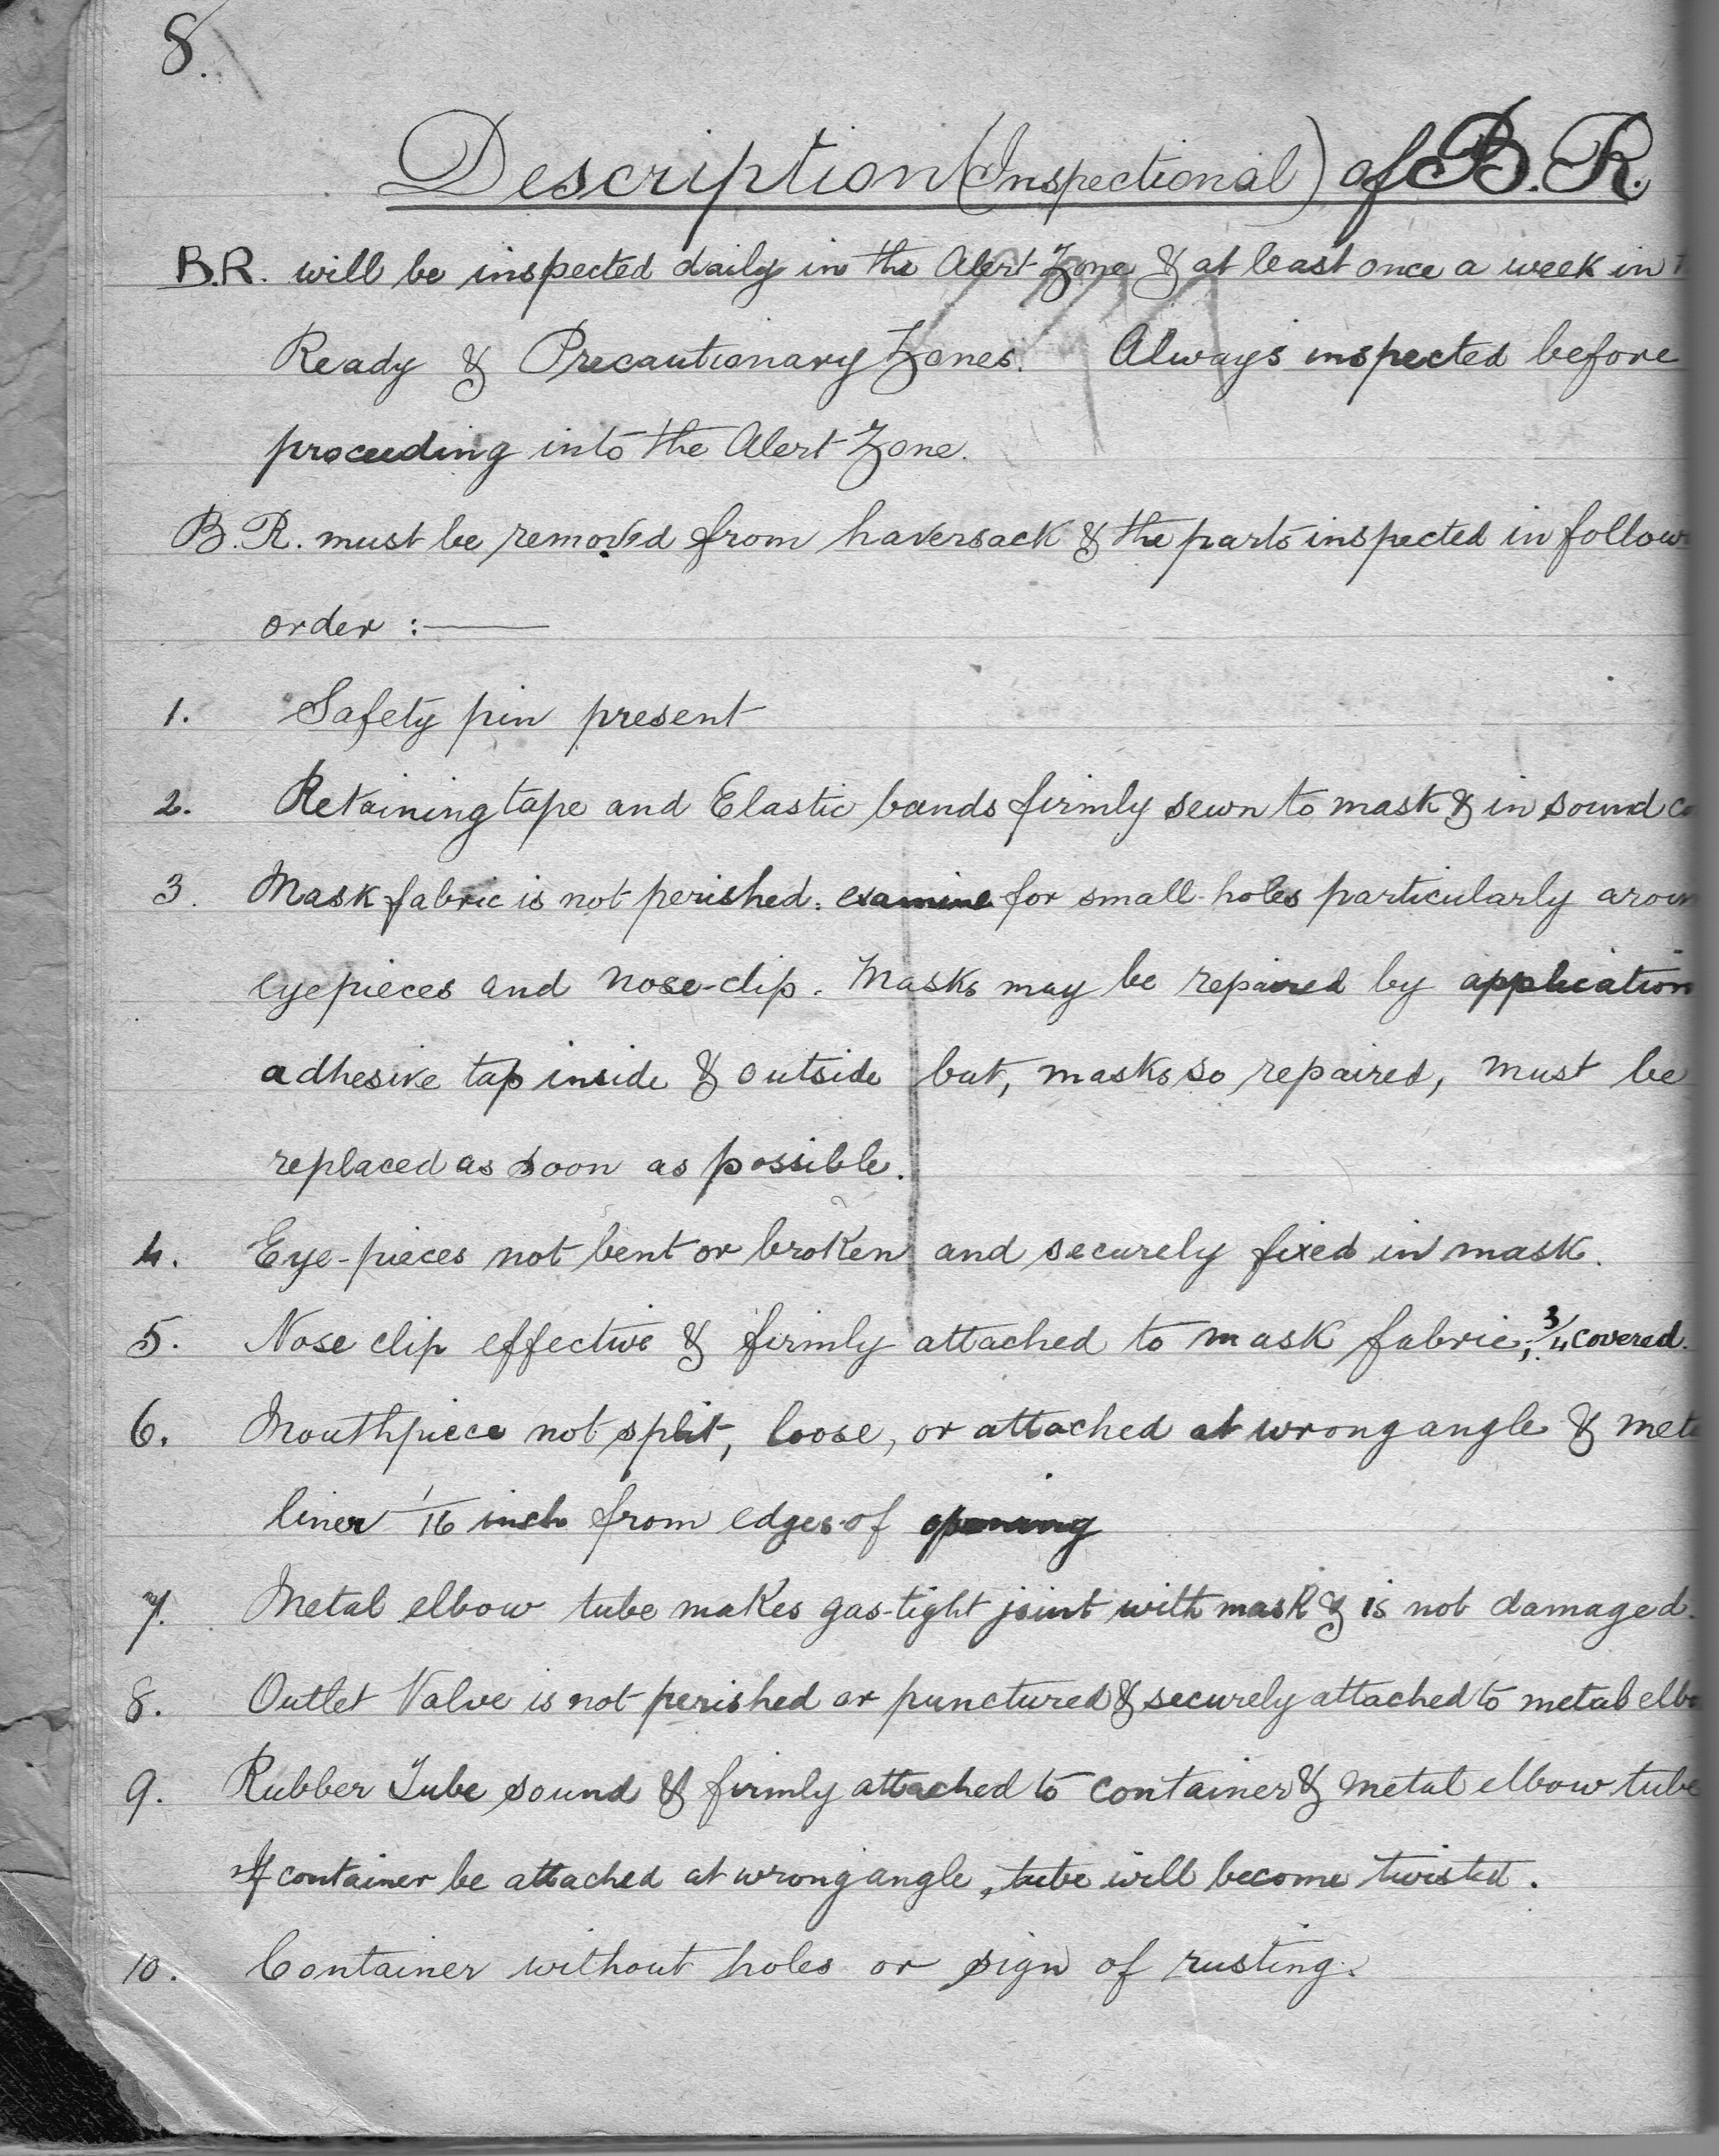 8.
Description (Inspectional) of B.R.
B.R. will be inspected daily in the Alert Zone & at least once a week in
Ready & Precautionary Zones. Always inspected before
proceeding into the Alert Zone.
B.R. must be removed from haversack & the parts inspected in follow
order :—
1. Safety pin present
2. Retaining tape and Elastic bands firmly sewn to mask & in sound co
3. Mask fabric is not perished: examine for small holes particularly aroun
eyepieces and nose-clip. Masks may be repaired by application
adhesive tap inside & outside but, masks so repaired, must be
replaced as soon as possible.
4. Eye-pieces not bent or broken and securely fixed in mask.
5. Nose clip effective & firmly attached to mask fabric; 3/4 covered.
6. Mouthpiece not split, loose, or attached at wrong angle & meta
liner 1/16 inch from edges of opening
7. Metal elbow tube makes gas-tight joint with mask & is not damaged.
8. Outlet Valve is not perished or punctured & securely attached to metal elbo
9. Rubber Tube sound & firmly attached to container & metal elbow tube
If container be attached at wrong angle, tube will become twisted.
10. Container without holes or sign of rusting.